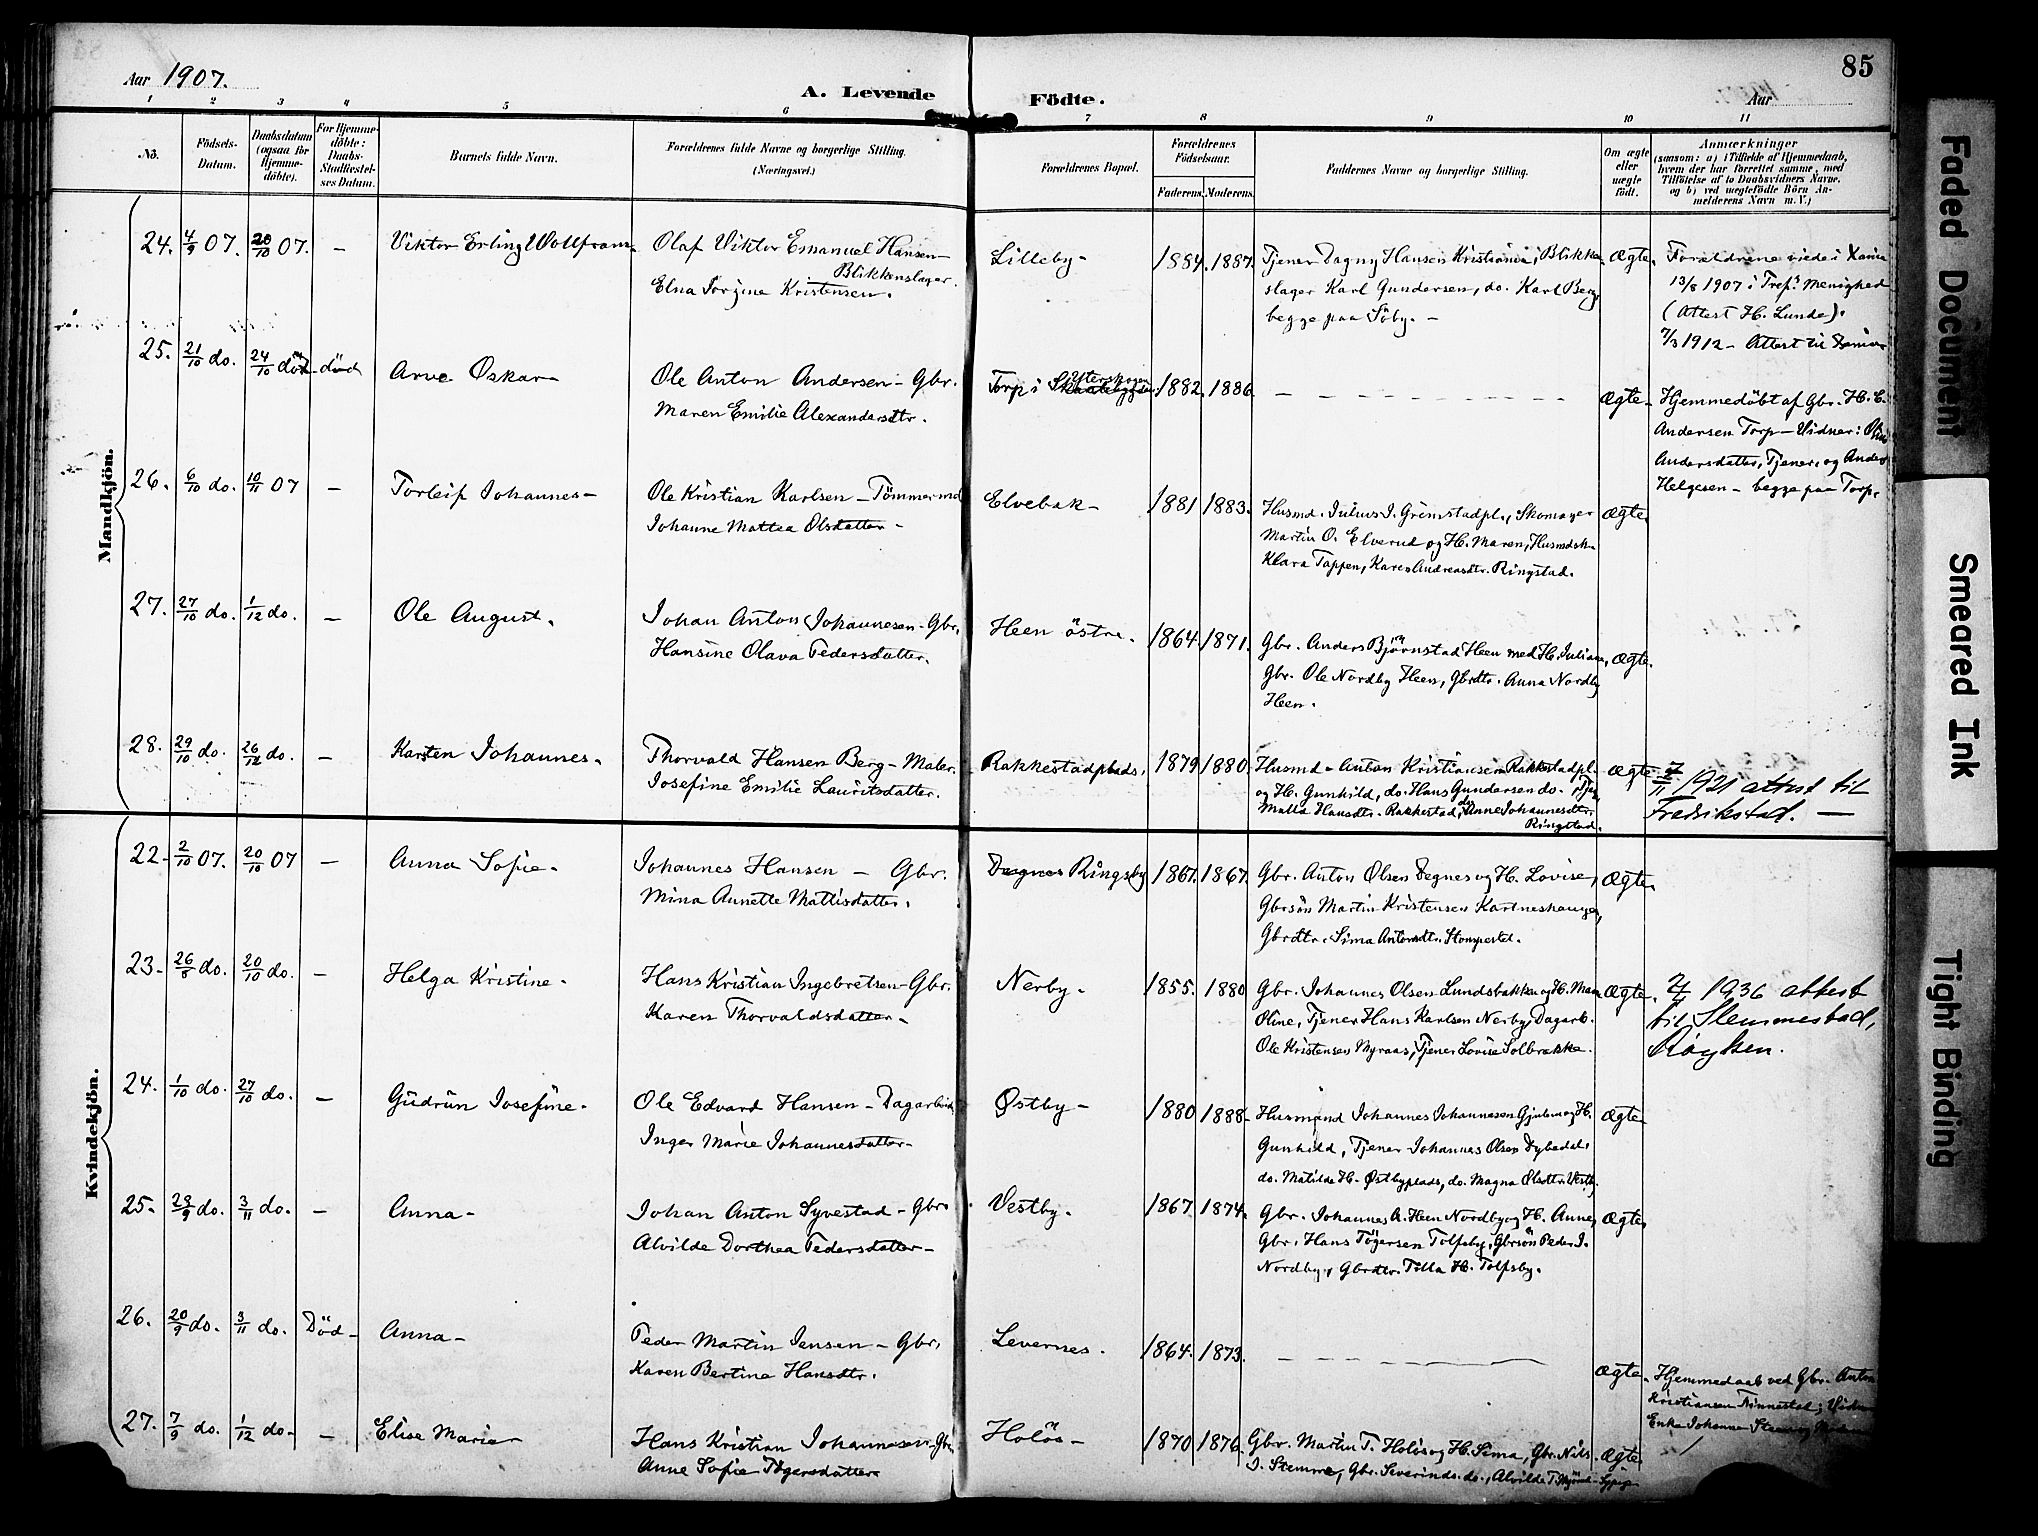 Aar 1907.
A. Levende Födte.
Aar
85
1 2 3 4 5 6 7 8 9 10 11
No.
Födsels-Datum.
Daabsdatum (ogsaa for Hjemmedöbte).
For Hjemmedöbte: Daabs-Stadfæstelses Datum.
Barnets fulde Navn.
Forældrenes fulde Navne og borgerlige Stilling. (Næringsvei.)
Forældrenes Bopæl.
Forældrenes Födselsaar.
Faderens. Moderens.
Faddernes Navne og borgerlige Stilling.
Om ægte eller uægte födt.
Anmærkninger
(saasom: a) i Tilfælde af Hjemmedaab, hvem der har forrettet samme, med Tilföielse af to Daabsvidners Navne, og b) ved uægtefödte Börn Anmelderens Navn m. V.)
Mandkjön.
24. 4/9 07. 20/10 07. – Viktor Erling Wollfram
Olaf Viktor Emanuel Hansen – Blikkenslager.
Elna Jorgine Kristensen.
Lilleby – 1884. 1887.
Tjener Dagny Hansen Kristiania, Blikken-
slager Karl Gundersen, do. Karl Berg
begge paa Söby. –
Ægte.
Forældrene viede i Xania
13/8 1907 i Tref. Menighed
(Attest H. Lunde).
7/3 1912 – Attest til Xania
25. 21/10 do. 24/10 död – död Arve Oskar –
Ole Anton Andersen – Gbr.
Maren Emilie Alexandersdtr.
Torp i Ytterskogen 1882. 1886.
Ægte –
Hjemmedöbt af Gbr. H. C.
Andersen Torp – Vidner:
Andersdatter, Tjener, og Anders
Helgesen – begge paa Torp.
26. 6/10 do. 10/11 07 – Torleif Johannes –
Ole Kristian Karlsen – Tömmermd
Johanne Mattea Olsdatter –
Elvebak – 1881 1883.
Husmd. Julius J. Grimstadpl., Skomager
Martin O. Elverud og H. Maren, Husmdsk.
Klara Tappen, Karen Andreasdtr. Ringstad.
Ægte.
27. 27/10 do. 1/12 do. – Ole August.
Johan Anton Johannesen – Gbr.
Hansine Olava Pedersdatter.
Heen östre. 1864. 1871.
Gbr. Anders Björnstad Heen med H. Juliane,
Gbr. Ole Nordby Heen, Gbrdtr. Anna Nordby
Heen.
Ægte.
28. 29/10 do. 26/12 do. – Karsten Johannes.
Thorvald Hansen Berg – Maler.
Josefine Emilie Lauritsdatter.
Rakkestadplads. 1879 1880.
Husmd. Anton Kristiansen Rakkestadpl.
og H. Gunhild, do. Hans Gundersen do. Tjen.
Malla Hansdtr. Rakkestad, do. Anne Johannesdtr.
Ringstad.
Ægte
7/11 1921 attest til
Fredrikstad. –
Kvindekjön.
22. 2/10 07. 20/10 07 – Anna Sofie.
Johannes Hansen – Gbr.
Mina Annette Mattisdatter.
Degnes Ringsby 1867. 1867.
Gbr. Anton Olsen Degnes og H. Lovise,
Gbrsön Martin Kristensen Kartneshaugen,
Gbrdtr. Sima Antonsdtr. Stomperud.
Ægte.
23. 26/8 do. 20/10 do. – Helga Kristine.
Hans Kristian Ingebretsen – Gbr.
Karen Thorvaldsdatter –
Nerby. 1855. 1880
Gbr. Johannes Olsen Lundsbakken og H. Maren
Oline, Tjener Hans Karlsen Nerby, Dagarb.
Ole Kristensen Myraas, Tjener Lovise Solbrække.
Ægte.
1936 attest
til Slemmestad,
Röyken.
24. 1/10 do. 27/10 do. – Gudrun Josefine.
Ole Edvard Hansen – Dagarbeid
Inger Marie Johannesdatter –
Østby – 1880 1888.
Husmand Johannes Johannesen Gjulem og H.
Gunhild, Tjener Johannes Olsen Dybedal.
do. Matilde H. Østbyplads, do. Magna Olsdtr. Vestby.
Ægte.
25. 23/9 do. 3/11 do. – Anna –
Johan Anton Syvestad – Gbr.
Alvilde Dorthea Pedersdatter –
Vestby. 1867. 1874.
Gbr. Johannes A. Heen Nordby og H. Anne,
Gbr. Hans Tögersen Tolfsby, Gbrsön Peder J.
Nordby, Gbrdtr. Tilla H. Tolfsby.
Ægte.
26. 20/9 do. 3/11 do. Död – Anna –
Peder Martin Jensen – Gbr.
Karen Bertine Hansdtr.
Levernes. 1864. 1873.
Ægte.
Hjemmedaab ved Gbr. Anton
Kristiansen Finnestad; Vidner
Enke Johanne
27. 7/9 do. 1/12 do. – Elise Marie
Hans Kristian Johannesen – Gbr.
Anne Sofie Tögersdatter
Holös – 1870 1876.
Gbr. Martin T. Holös og H. Sima, Gbr. Nils
J. Stemme, Gbr. Severin do. do., Alvilde T.
Ægte
Faded Document
Smeared Ink
Tight Binding